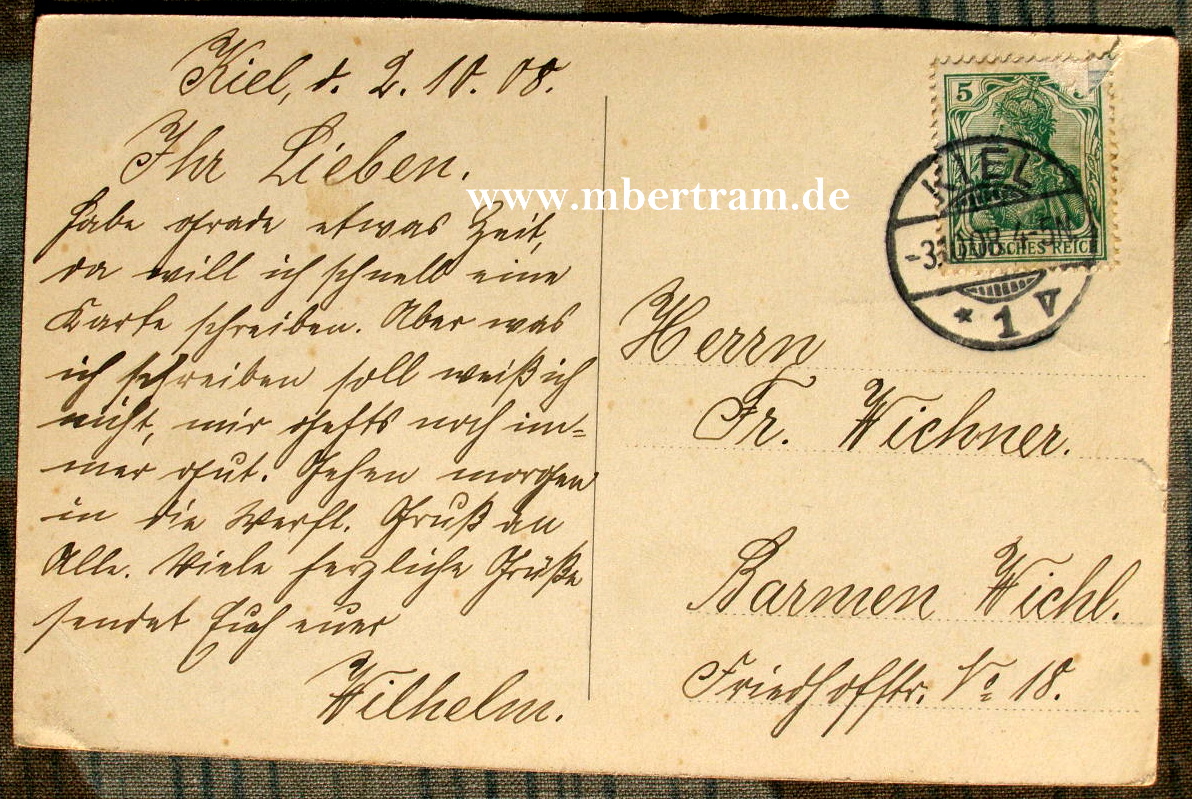 Kiel, d. 2.10.08.
Ihr Lieben.
Habe grade etwas Zeit,
da will ich schnell eine
Karte schreiben. Aber was
ich schreiben soll weiß ich
nicht, mir gehts noch im=
mer gut. Gehen morgen
in die Werft. Gruß an
Alle. Viele herzliche Grüße
sendet Euch euer
Wilhelm.
www.mbertram.de
5
DEUTSCHES REICH
KIEL
-3.10.08 4-5N
* 1 V
Herrn
Fr. Wichner.
Barmen Wichl.
Friedhofstr. No 18.